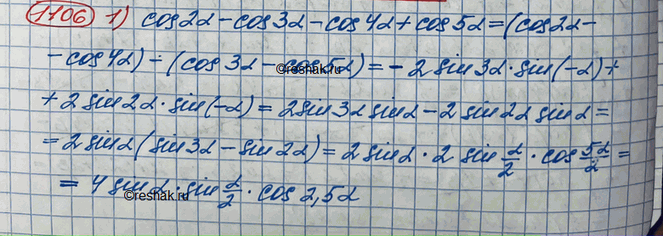 1106 1) cos2α - cos3α - cos4α + cos5α = (cos2α -
- cos4α) - (cos3α - cos5α) = - 2 sin3α · sin(-α) +
©reshak.ru
+ 2 sin2α · sin(-α) = 2sin3α sinα - 2 sin2α sinα =
= 2 sinα (sin3α - sin2α) = 2 sinα · 2 sin α/2 · cos 5α/2 =
= 4 sinα · sin α/2 · cos 2,5α
©reshak.ru